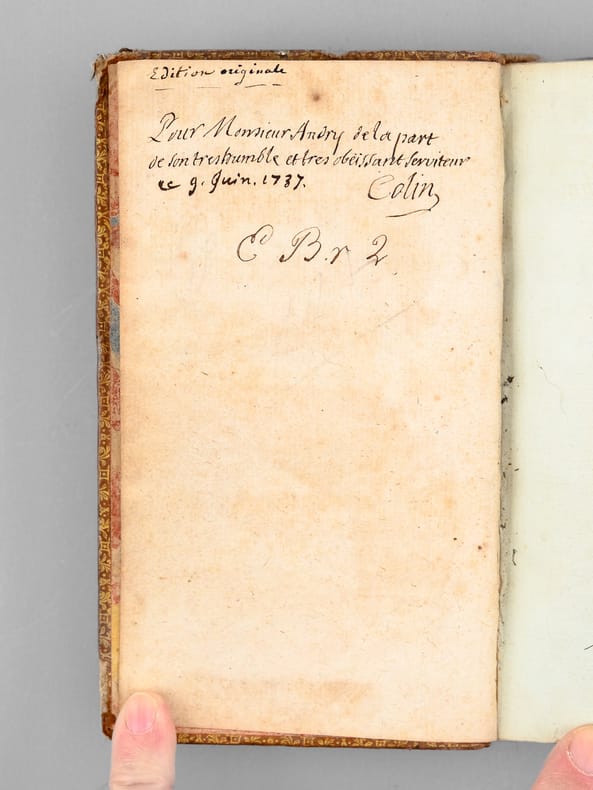 Edition originale
Pour Monsieur Andry de la part
de son tres humble et tres obeissant serviteur
ce 9. Juin. 1737.
Colin
C B. r 2